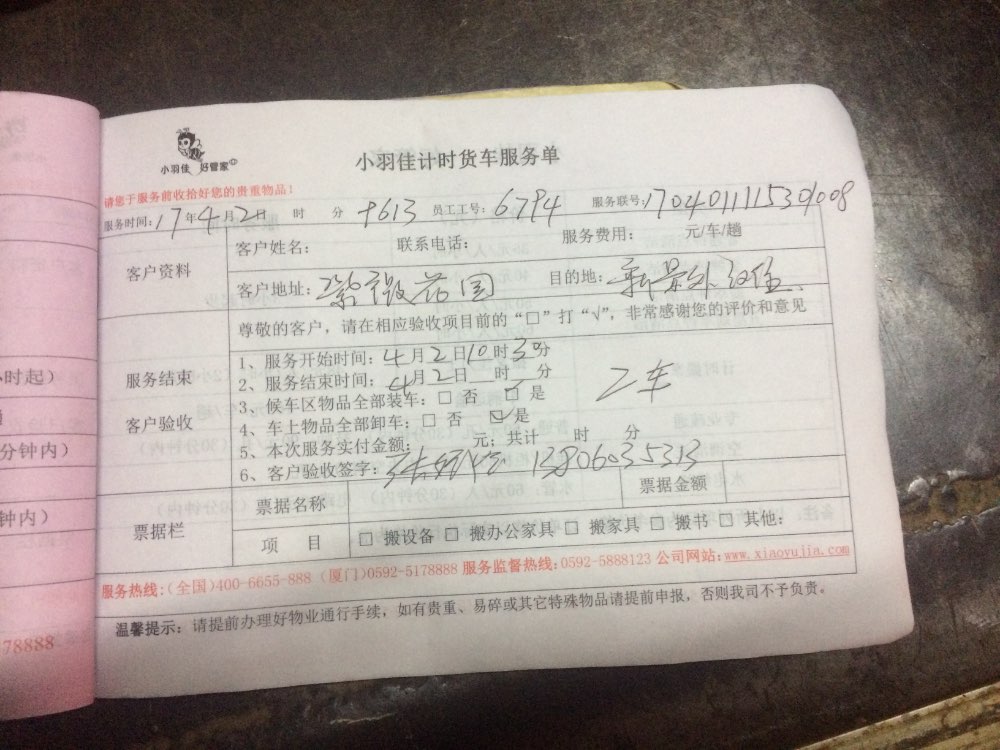 小羽佳 好管家
小羽佳计时货车服务单
请您于服务前收拾好您的贵重物品！
服务时间：17年4月2日 时 分 +613 员工工号：6794 服务联号：1704011115301008
客户资料
客户姓名： 联系电话： 服务费用： 元/车/趟
客户地址：紫薇花园 目的地：
尊敬的客户，请在相应验收项目前的“□”打“√”，非常感谢您的评价和意见
服务结束
客户验收
1、服务开始时间：4月2日10时30分
2、服务结束时间：4月2日 时 分
3、候车区物品全部装车：□ 否 ☑ 是
4、车上物品全部卸车：□ 否 ☑ 是
二车
5、本次服务实付金额： 元；共计 时 分
6、客户验收签字： 13806035313
票据栏
票据名称 票据金额
项 目 □ 搬设备 □ 搬办公家具 □ 搬家具 □ 搬书 □ 其他：
服务热线：（全国）400-6655-888（厦门）0592-5178888 服务监督热线：0592-5888123 公司网站：www.xiaoyujia.com
温馨提示：请提前办理好物业通行手续，如有贵重、易碎或其它特殊物品请提前申报，否则我司不予负责。
小时起）
分钟内）
钟内）
78888